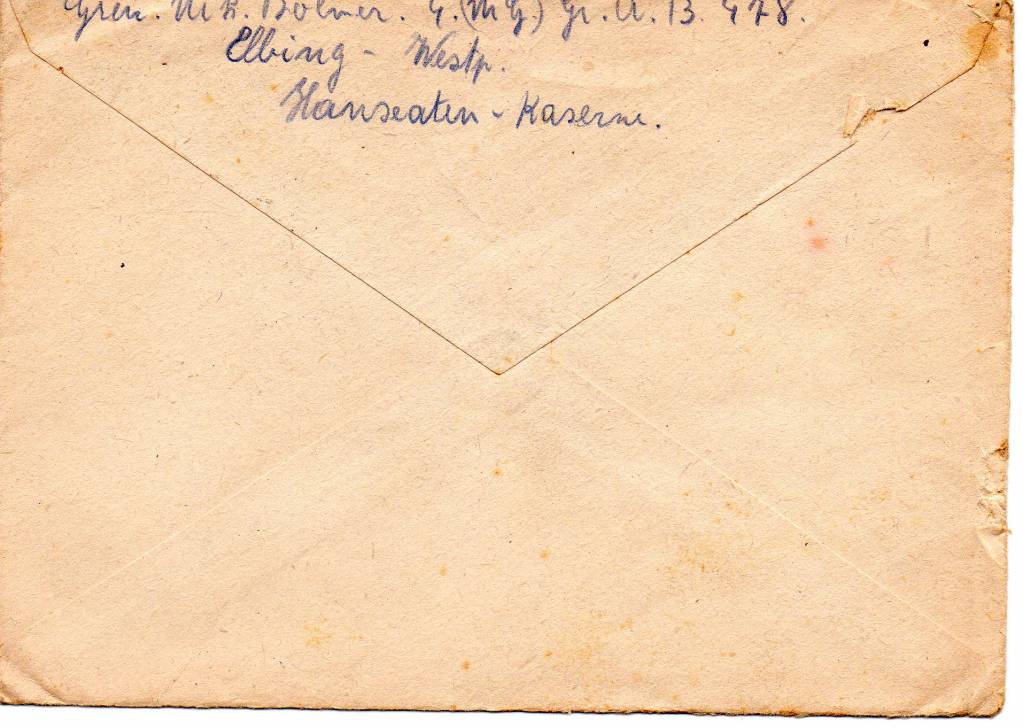 Gren. Bölner. 4.(M.G.) Gr. A. B. 478.
Elbing - Westp.
Hanseaten - Kaserne.